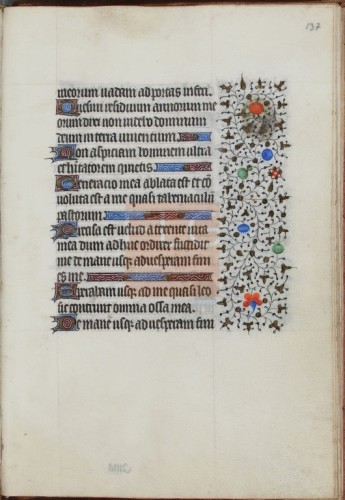 137
meorum uadam ad portas inferi.
Quesiui residuum annorum me
orum dixi non uidebo dominum
deum in terra uiuencium
Non aspiciam hominem ultra
et habitatorem quietis.
Generacio mea ablata est et co
uoluta est a me quasi tabernaculū
pastorum.
Precisa est uelut a texente uita
mea dum adhuc ordirer succidit
me de mane usq; ad uesperam fini
es me.
Sperabam usq; ad me quasi leo
sic contriuit omnia ossa mea.
De mane usq; ad uesperam fini